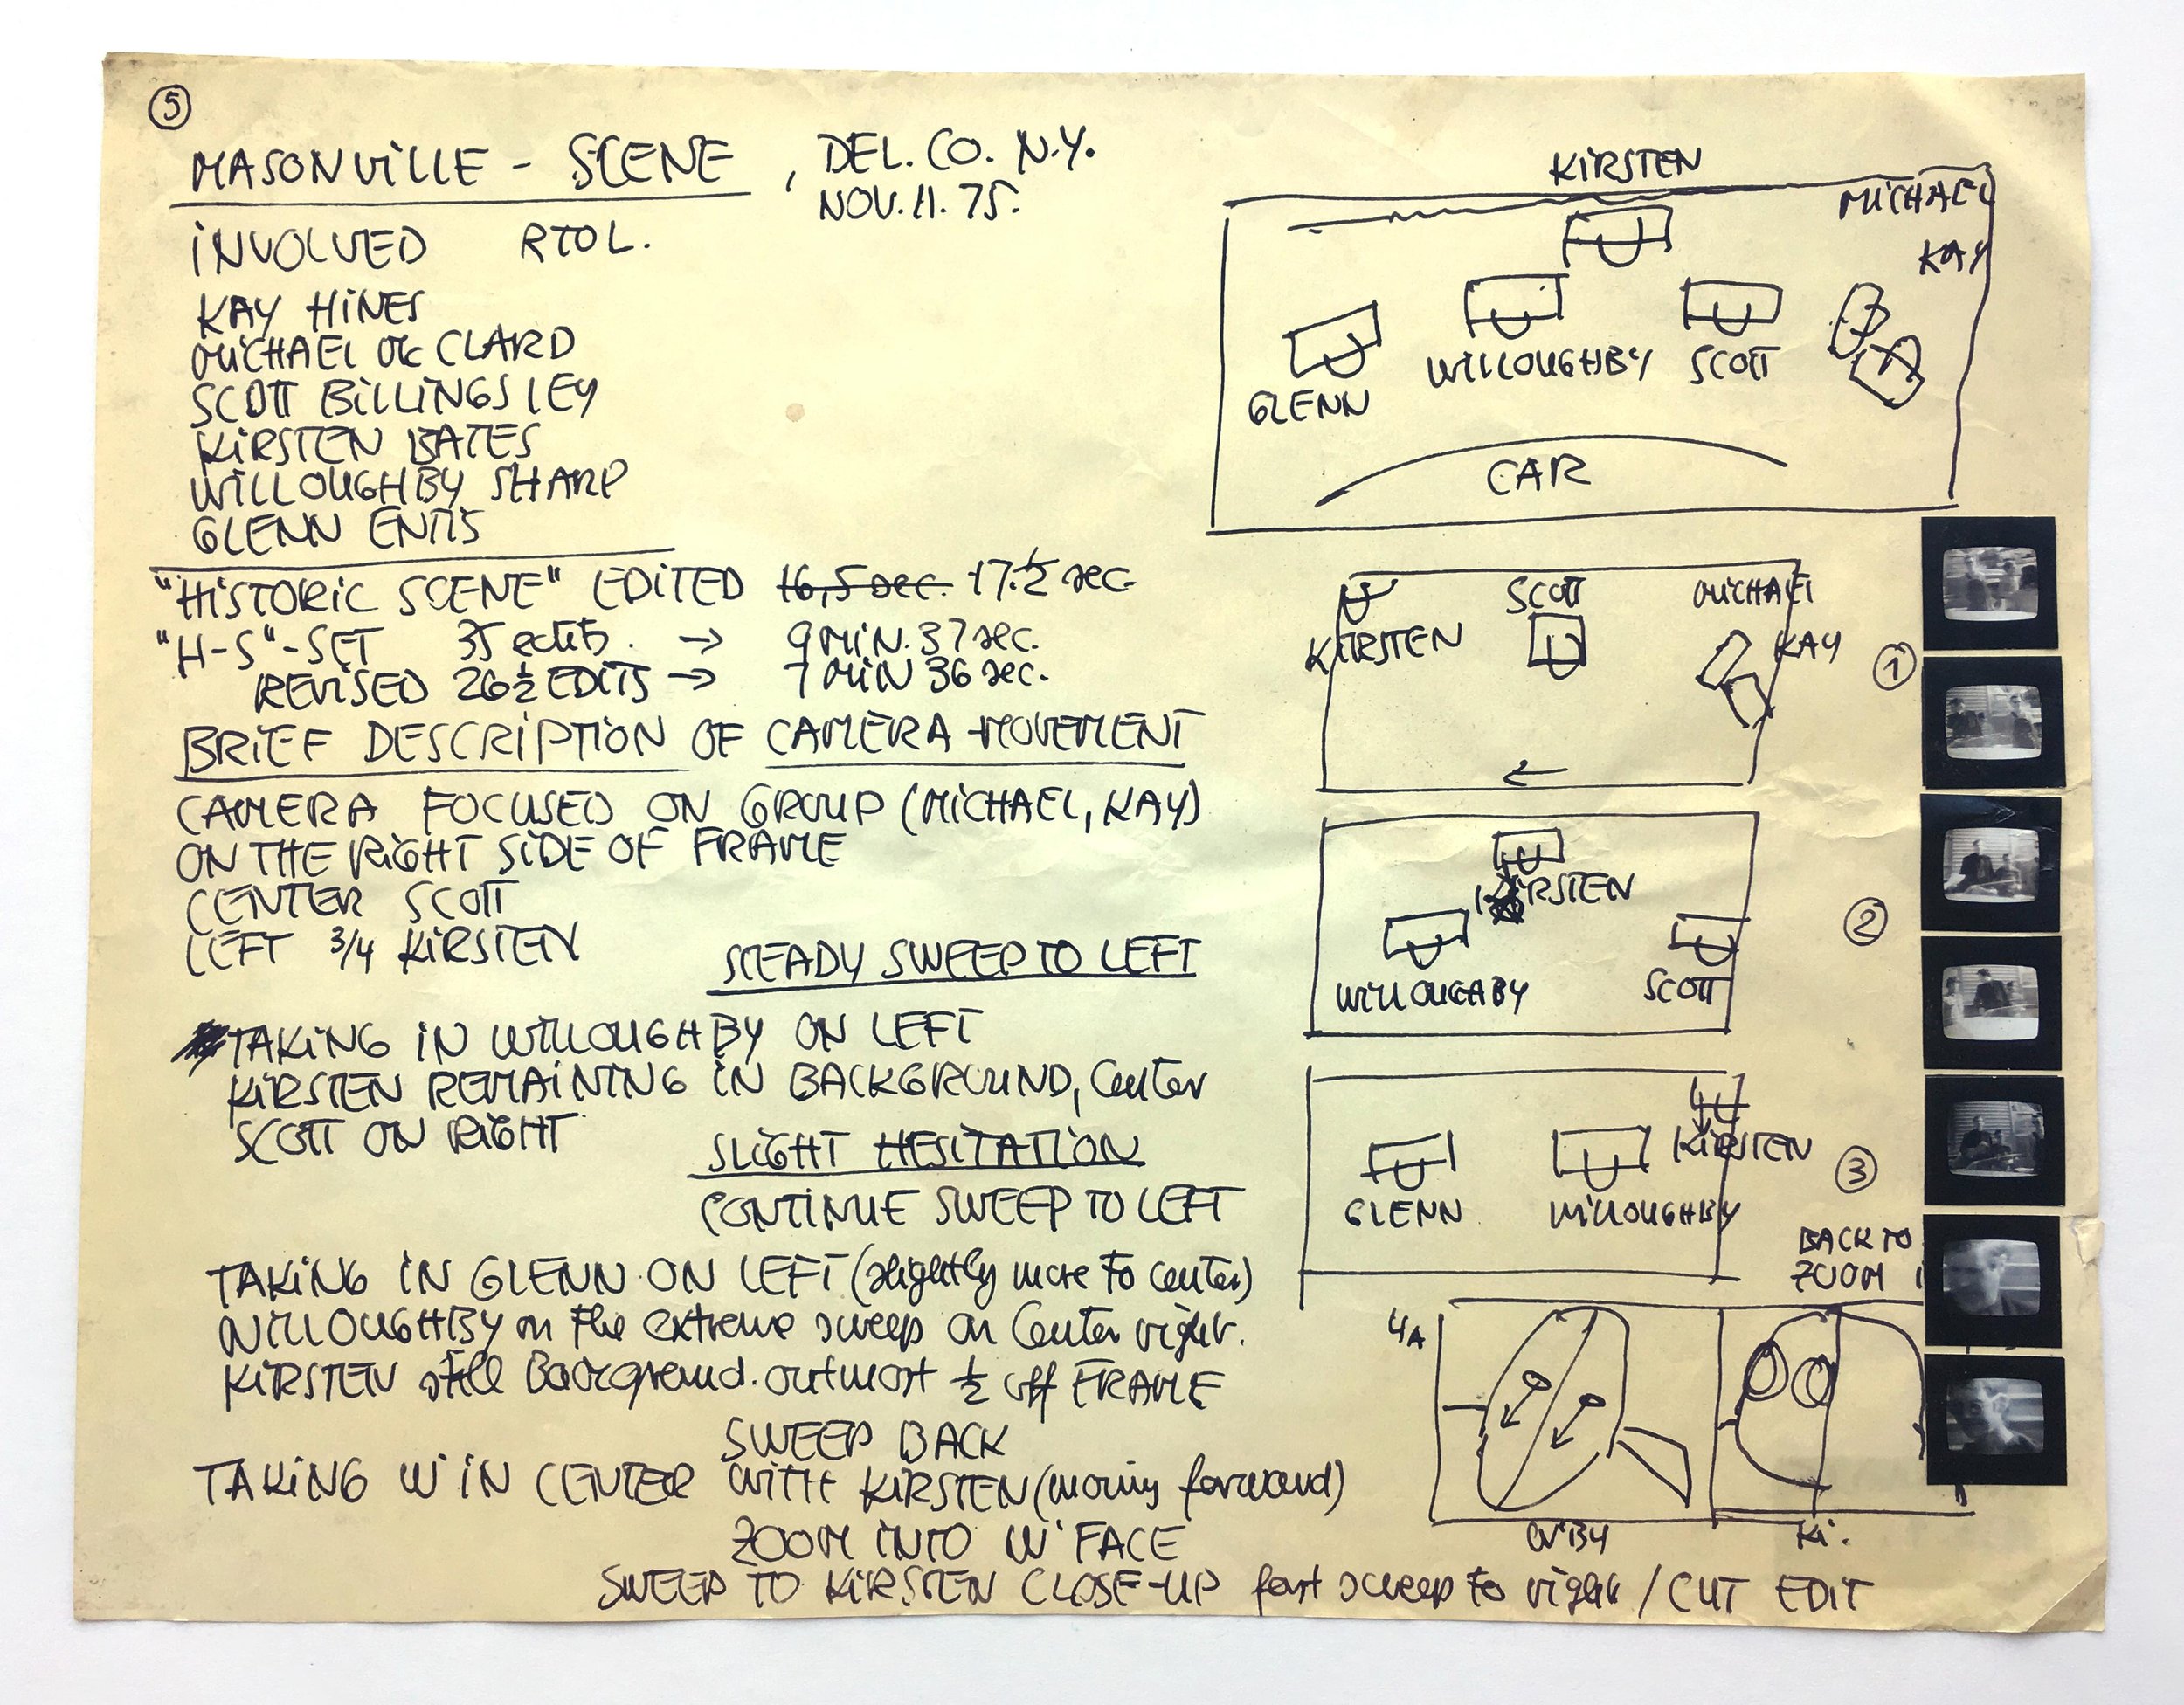 5
MASONVILLE - SCENE, DEL. CO. N.Y.
NOV. 11. 75.
INVOLVED RTOL.
KAY HINES
MICHAEL Mc CLARD
SCOTT BILLINGSLEY
KIRSTEN BATES
WILLOUGHBY SHARP
GLENN ENTIS
"HISTORIC SCENE" EDITED 16,5 sec. 17.½ sec.
"H-S"-SET 35 edits. → 9 MIN. 37 sec.
REVISED 26½ EDITS → 7 MIN 36 sec.
BRIEF DESCRIPTION OF CAMERA-MOVEMENT
CAMERA FOCUSED ON GROUP (MICHAEL, KAY)
ON THE RIGHT SIDE OF FRAME
CENTER SCOTT
LEFT 3/4 KIRSTEN
STEADY SWEEP TO LEFT
TAKING IN WILLOUGHBY ON LEFT
KIRSTEN REMAINING IN BACKGROUND, Center
SCOTT ON RIGHT
SLIGHT HESITATION
CONTINUE SWEEP TO LEFT
TAKING IN GLENN ON LEFT (slightly more to center)
WILLOUGHBY on the extreme sweep on Center right.
KIRSTEN still Background. outmost ½ off FRAME
SWEEP BACK
TAKING W IN CENTER WITH KIRSTEN (moving forward)
ZOOM INTO W' FACE
SWEEP TO KIRSTEN CLOSE-UP fast sweep to right / CUT EDIT
KIRSTEN
MICHAEL
KAY
GLENN
WILLOUGHBY
SCOTT
CAR
KIRSTEN
SCOTT
MICHAEL
KAY
1
←
KIRSTEN
WILLOUGHBY
SCOTT
2
GLENN
WILLOUGHBY
KIRSTEN
3
BACK TO
ZOOM
4A
W'BY
Ki.